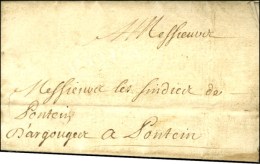 A Messieurs
Messieurs les sindics de
Pontein
Dargouges a Pontein